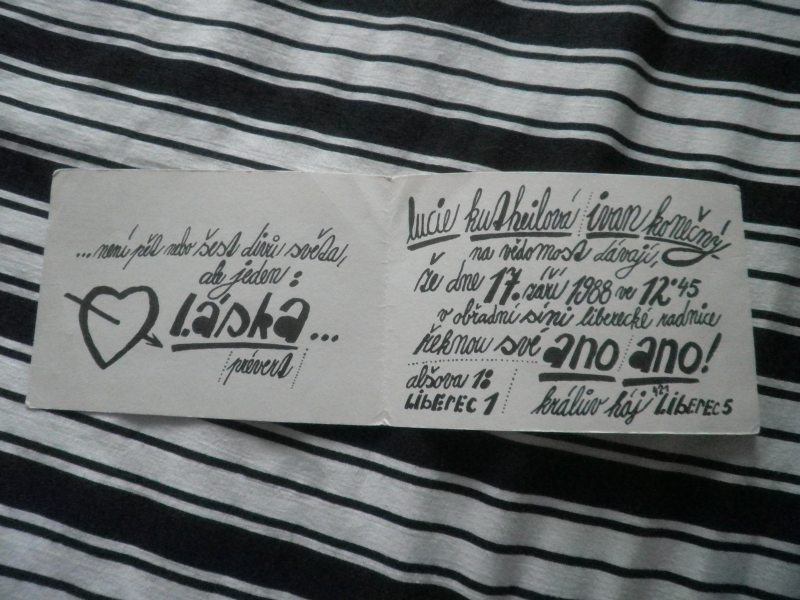 ...není pět nebo šest divů světa,
ale jeden:
láska...
prévert
lucie kutheilová ivan konečný
na vědomost dávají,
že dne 17. září 1988 ve 12.45
v obřadní síni liberecké radnice
řeknou své ano ano!
alšova 18
LIBEREC 1
králův háj 421 LIBEREC 5